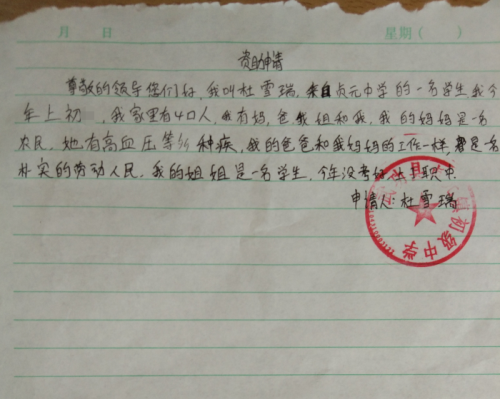 月 日 星期（ ）
资助申请
尊敬的领导您们好，我叫杜雪瑞，来自贞元中学的一名学生我今
年上初 ，我家里有4口人，我有妈，爸我姐和我，我的妈妈是一名
农民，她有高血压等 种疾，我的爸爸和我妈妈的工作一样，都是名
朴实的劳动人民，我的姐姐是一名学生，今年没考好 上职中
申请人：杜雪瑞
县 初级中学